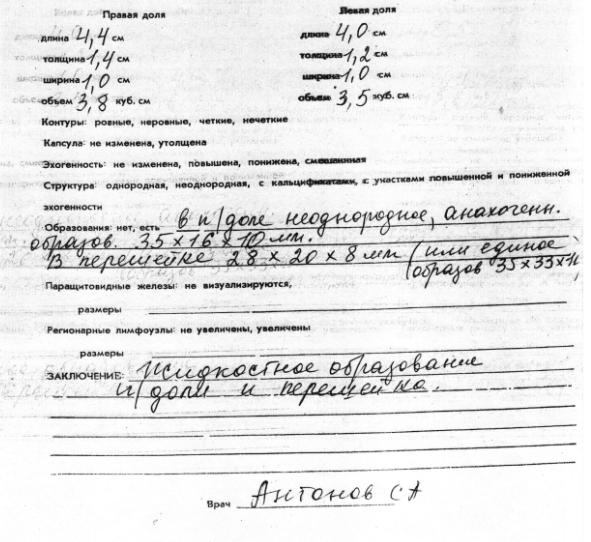 Правая доля Левая доля
длина 4,4 см длина 4,0 см
толщина 1,4 см толщина 1,2 см
ширина 1,0 см ширина 1,0 см
объем 3,8 куб. см объем 3,5 куб. см
Контуры: ровные, неровные, четкие, нечеткие
Капсула: не изменена, утолщена
Эхогенность: не изменена, повышена, понижена, смешанная
Структура: однородная, неоднородная, с кальцификатами, с участками повышенной и пониженной
эхогенности
Образования: нет, есть в п/доле неоднородное, анэхогенн.
образов. 35 х 16 х 10 мм.
В перешейке 28 х 20 х 8 мм (или единое
образов 35х33х
Паращитовидные железы: не визуализируются,
размеры
Регионарные лимфоузлы: не увеличены, увеличены
размеры
ЗАКЛЮЧЕНИЕ: Жидкостное образование
п/доли и перешейка.
Врач Антонов СА